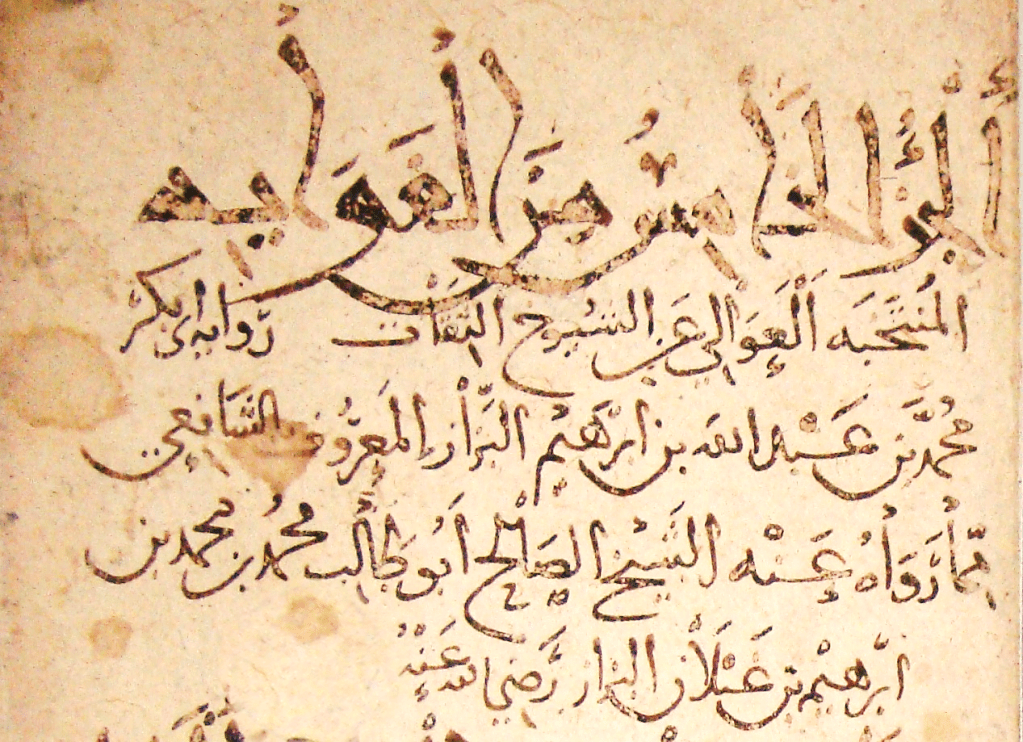 ألجُزْءُ الخَامِسُ مِنَ الفَوَايد
المُنتَخَبَه العَوَالي عَنِ الشيُوخ الثِّقَات رِوَايه ابى بَكر
مُحمَّد بن عَبْد الله بن ابرَهيْم البَزَّاز المَعرُوف بالشَّافِعي
ممَّا رَوَاهُ عَنْه الشَّيْخ الصَالح أبُو طَالِب محمدُ بن محمد بن
ابرهيْم بن غَيْلَان البزاز رَضي الله عَنْه